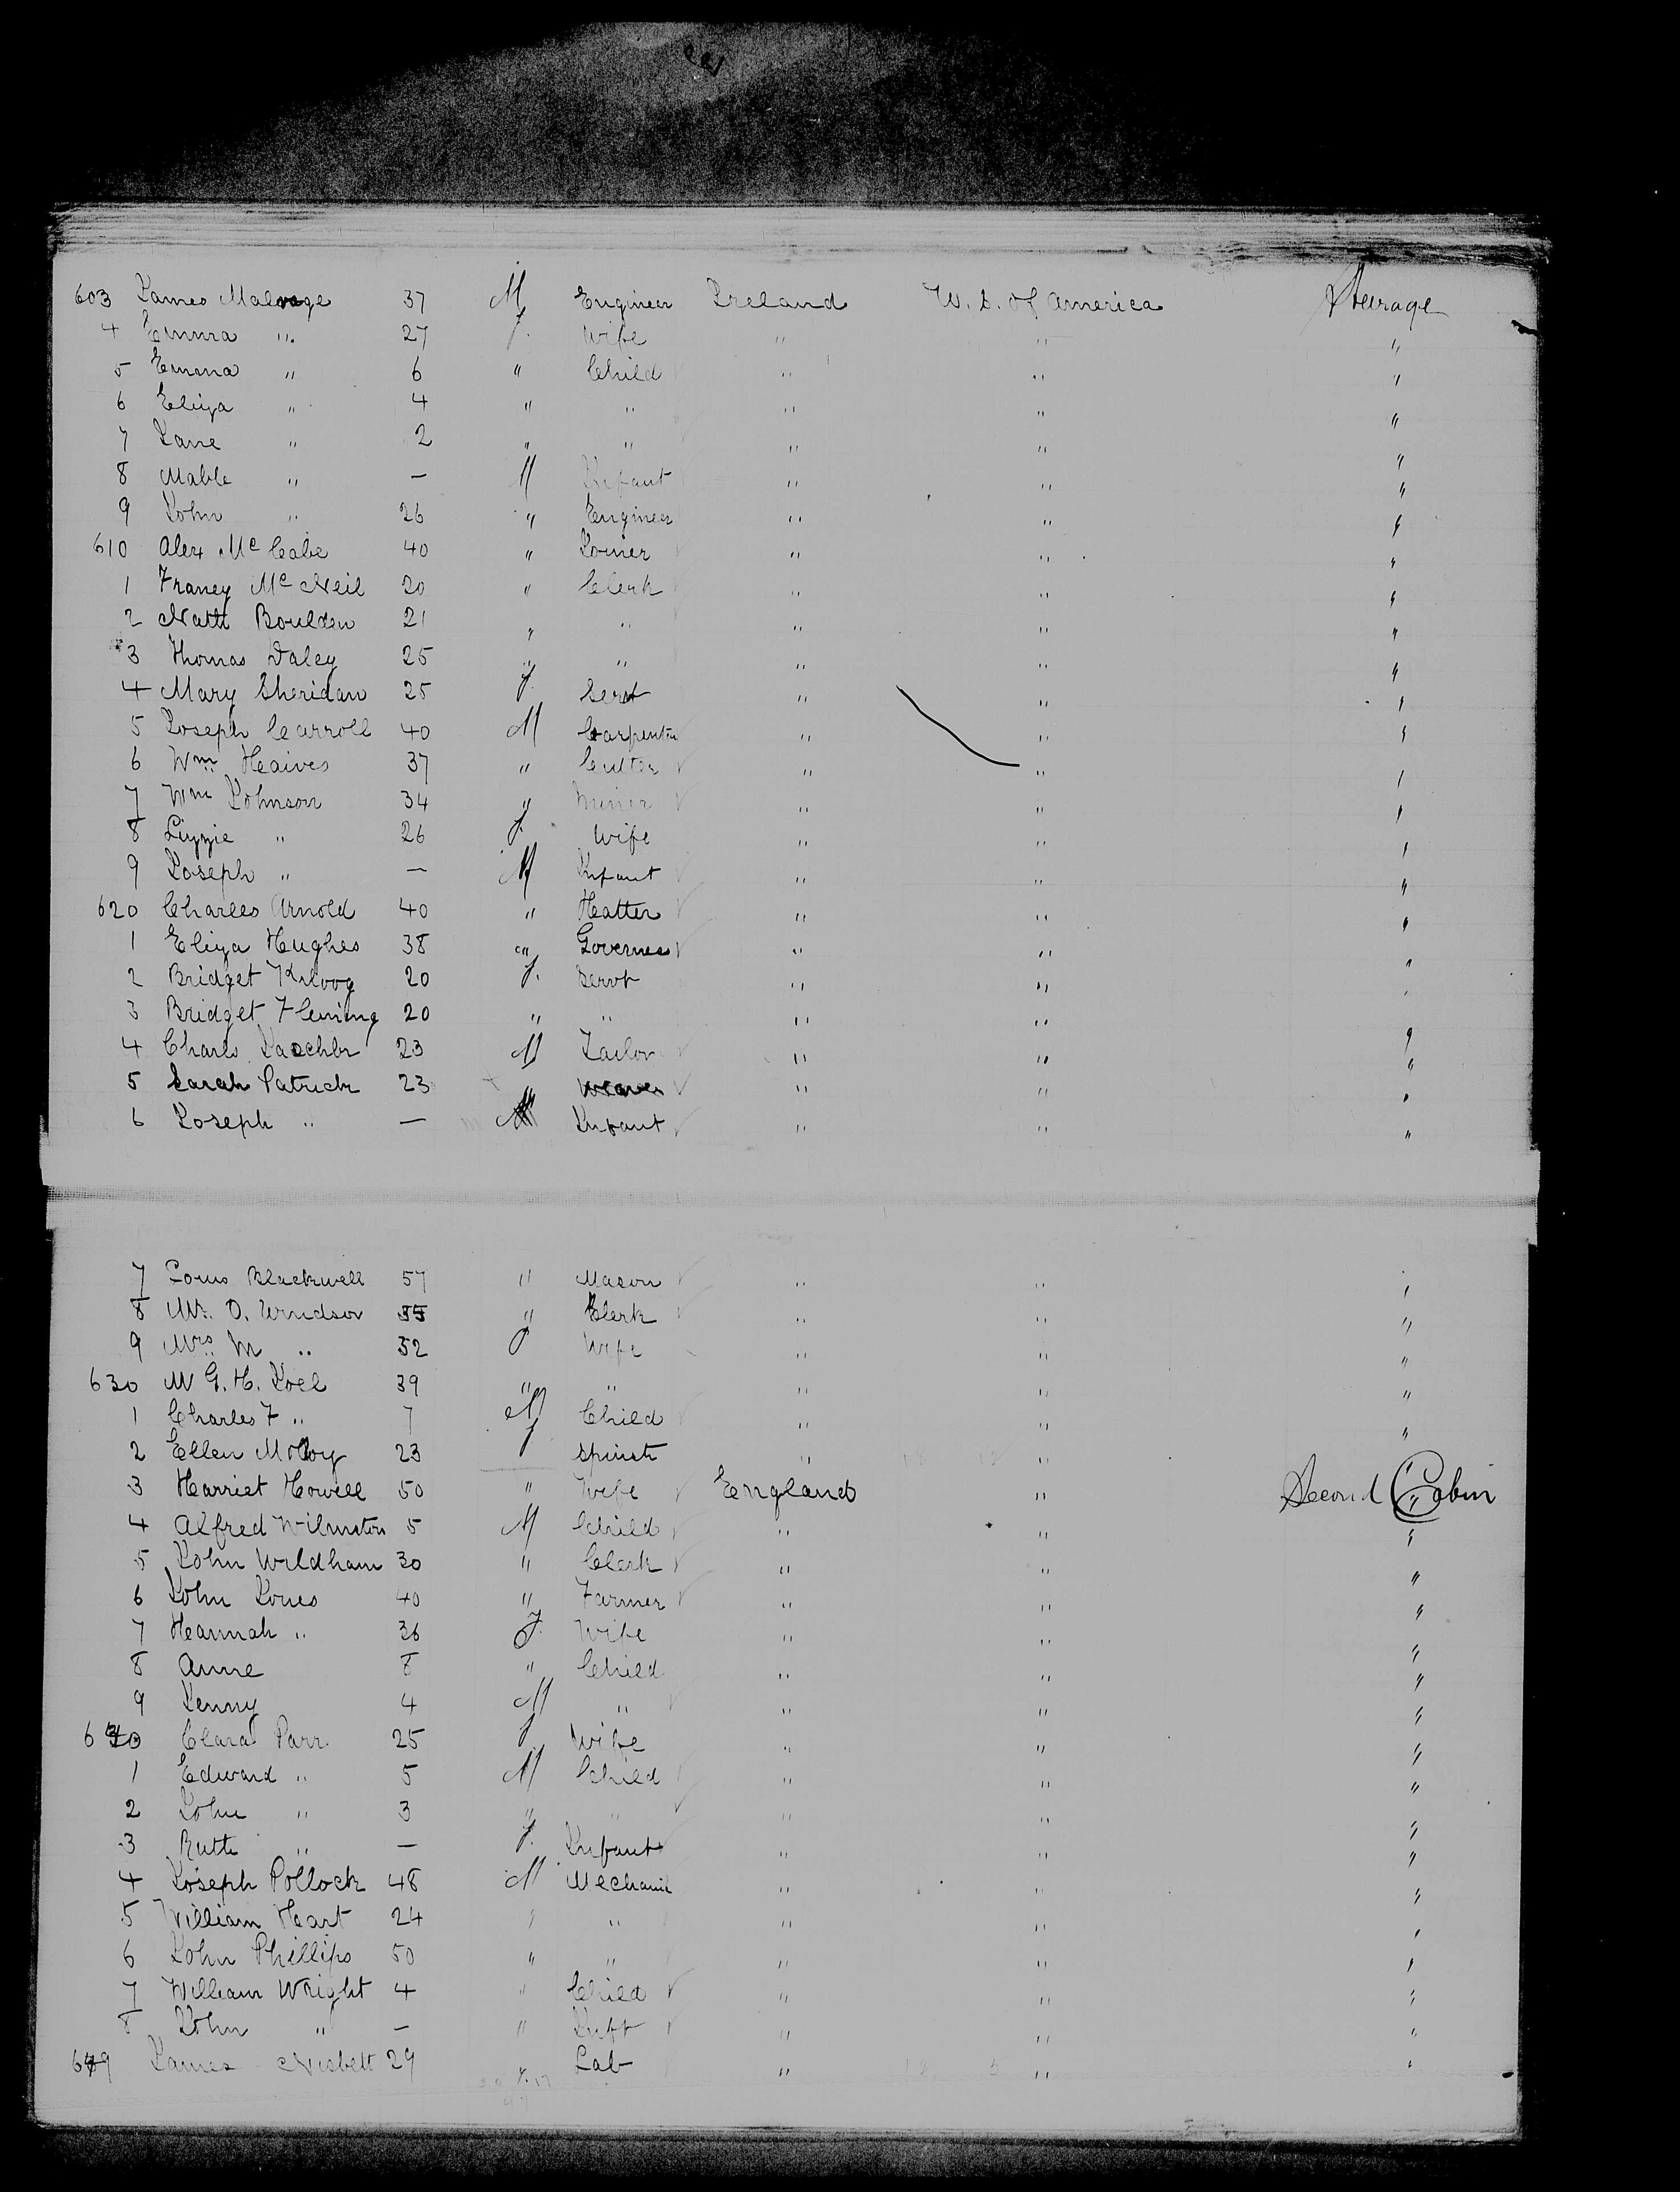 603 James Malvage 37 M Engineer Ireland U. S. of America Stearage
4 Emma " 27 f. Wife " " "
5 Emma " 6 " Child " " "
6 Eliza " 4 " " " " "
7 Jane " 2 " " " " "
8 Mable " — M Infant " " "
9 John " 26 " Engineer " " "
610 Alex McCabe 40 " Joiner " " "
1 Franey McNeil 20 " Clerk " " "
2 Nath Boulden 21 " " " " "
3 Thomas Daley 25 " " " " "
4 Mary Sheridan 25 f. Servt " " "
5 Joseph Carroll 40 M Carpenter " " "
6 Wm Heaives 37 " Cutter " " "
7 Wm Johnson 34 " Miner " " "
8 Lizzie " 26 f. Wife " " "
9 Joseph " — M Infant " " "
620 Charles Arnold 40 " Hatter " " "
1 Eliza Hughes 38 " Governess " " "
2 Bridget 20 f. Servt " " "
3 Bridget Fleming 20 " " " " "
4 Charls 23 M Tailor " " "
5 Sarah Patrick 23 " Weaver " " "
6 Joseph " — M Infant " " "
7 Louis Blackwell 57 " Mason " " "
8 Mr. O. Windsor 35 " Clerk " " "
9 Mrs. M " 32 f Wife " " "
630 M G. H. Joel 39 " " " " "
1 Charles F " 7 M Child " " "
2 Ellen Molloy 23 f Spinstr " " "
3 Harriet Howell 50 " Wife England " Second Cabin
4 Alfred Wilmston 5 M Child " " "
5 John Wildham 30 " Clerk " " "
6 John Jones 40 " Farmer " " "
7 Hannah " 36 f. Wife " " "
8 Anne 8 " Child " " "
9 Jenny 4 M " " " "
640 Clara Parr 25 f Wife " " "
1 Edward " 5 M Child " " "
2 John " 3 " " " " "
3 Ruth " — f. Infant " " "
4 Joseph Pollock 48 M Mechanic " " "
5 William Hart 24 " " " " "
6 John Phillips 50 " " " " "
7 William Wright 4 " Child " " "
8 John " — " Inft " " "
649 James Nisbett 29 " Lab " " "